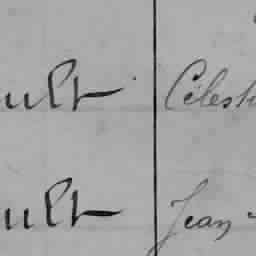 ult Célest
ult Jean